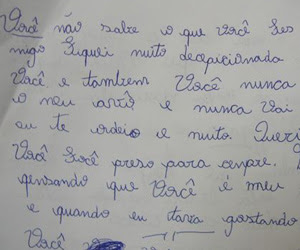 Você não sabe o que você fes
migo Fiquei muito decepicionada
Você e tambem Você nunca
o meu e nunca vai
eu te odeio e muito Quero
Você Você preso para cenpre.
pensando que Você é meu
e quando eu tava gostando
Você